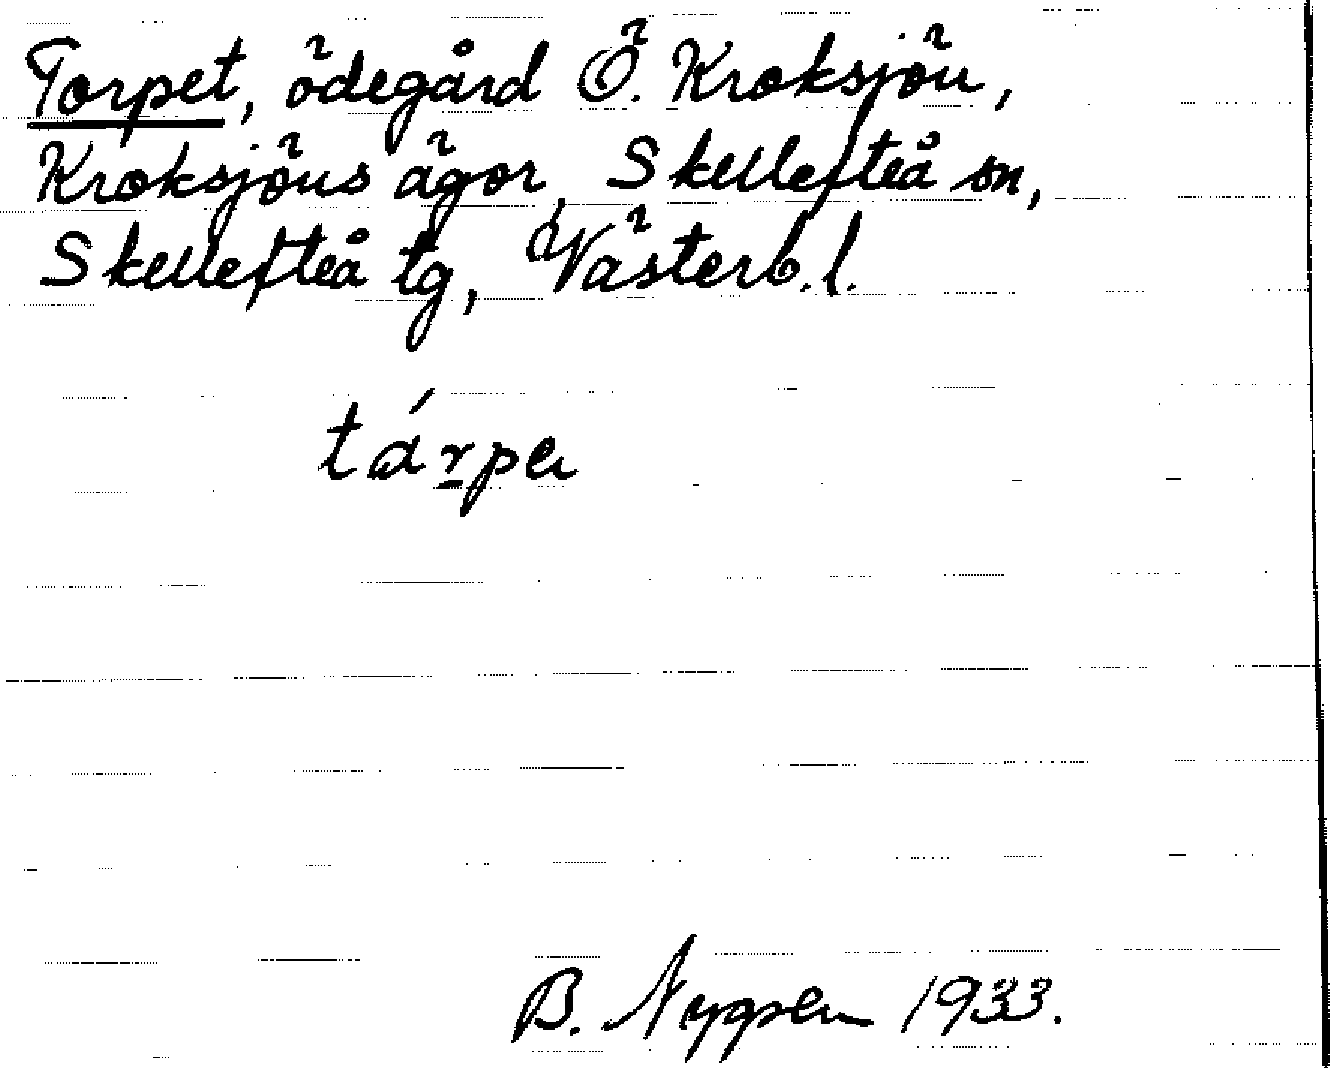 Torpet, ödegård Ö. Kroksjön,
Kroksjöns ägor, Skellefteå sn,
Skellefteå tg, Västerb. l.
tárpa
B. Nygren 1933.